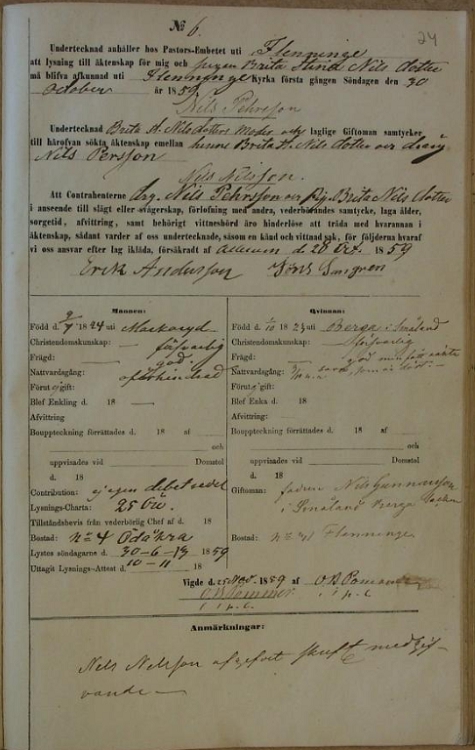 № 6.
24
Undertecknad anhåller hos Pastors-Embetet uti Flenninge
att lysning till äktenskap för mig och pigan Brita Nils dotter
må blifva afkunnad uti Flenninge Kyrka första gången Söndagen den 30
October år 1859
Nils Pehrsson
Undertecknad Brita N. Nilsdotters laglige Giftoman samtycker
till härofvan sökta äktenskap emellan henne Brita Nils dotter och dräng
Nils Persson
Nils Nilsson.
Att Contrahenterne drg. Nils Pehrsson och Pig. Brita Nils dotter
i anseende till slägt eller svågerskap, förlofning med andra, vederbörandes samtycke, laga ålder,
sorgetid, afvittring, samt behörigt vittnesbörd äro hinderlöse att träda med hvarannan i
äktenskap, sådant varder af oss undertecknade, såsom en känd och vittnad sak, för följderna hvaraf
vi oss ansvar efter lag ikläda, försäkrat af Allerum d. 20 Oct. 1859
Erick Andersson
Mannen:
Född d. 1824 uti Markaryd
Christendomskunskap: försvarlig
Frägd: god
Nattvardsgång: oförhindrad
Förut ej gift:
Blef Enkling d. 18
Afvittring
Bouppteckning förrättades d. 18 af
och
uppvisades vid Domstol
d. 18
Contribution: ej egen debetsedel
Lysnings-Charta: 25 öre.
Tillståndsbevis från vederbörlig Chef af d. 18
Bostad: No 4 Ödåkra
Lystes söndagarne d. 30-6-13 1859
Uttagit Lysnings-Attest d. 10-11 18
Qvinnan:
Född d. 18 uti Berga i Småland
Christendomskunskap: försvarlig
Frägd: god
Nattvardsgång:
Förut ej gift:
Blef Enka d. 18
Afvittring:
Bouppteckning förrättades d. 18 af
och
uppvisades vid Domstol
d. 18
Giftoman: fadren Nils Gunnarsson
i Småland Berga Socken
Bostad: Flenninge
Vigde d. 25 Nov. 1859 af
Anmärkningar:
Nils Nilsson afgifvit skrift med gif-
vande